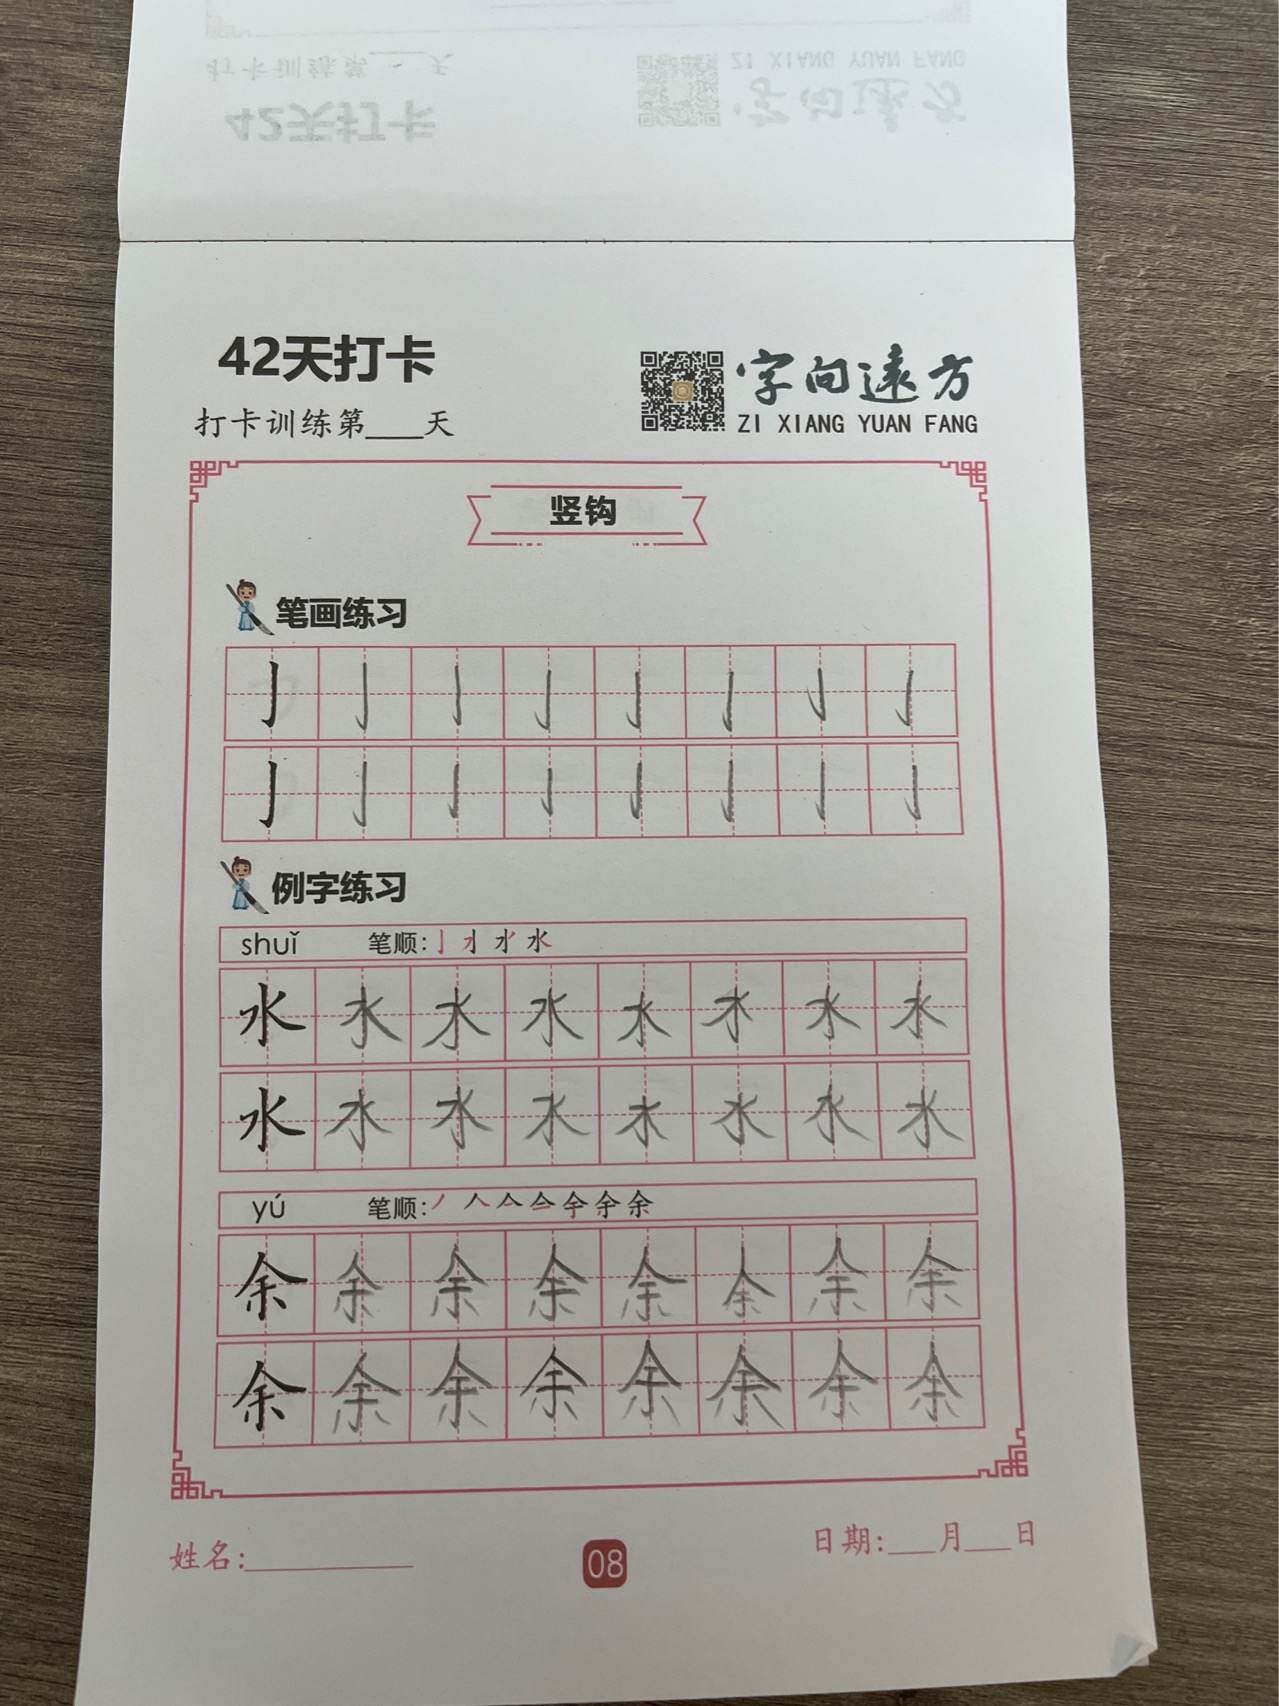 42天打卡
打卡训练第___天
字向遠方
ZI XIANG YUAN FANG
竖钩
笔画练习
亅 亅 亅 亅 亅 亅 亅 亅
亅 亅 亅 亅 亅 亅 亅 亅
例字练习
shuǐ 笔顺:
水 水 水 水 水 水 水 水
水 水 水 水 水 水 水 水
yú 笔顺:
余 余 余 余 余 余 余 余
余 余 余 余 余 余 余 余
姓名:
08
日期:___月___日